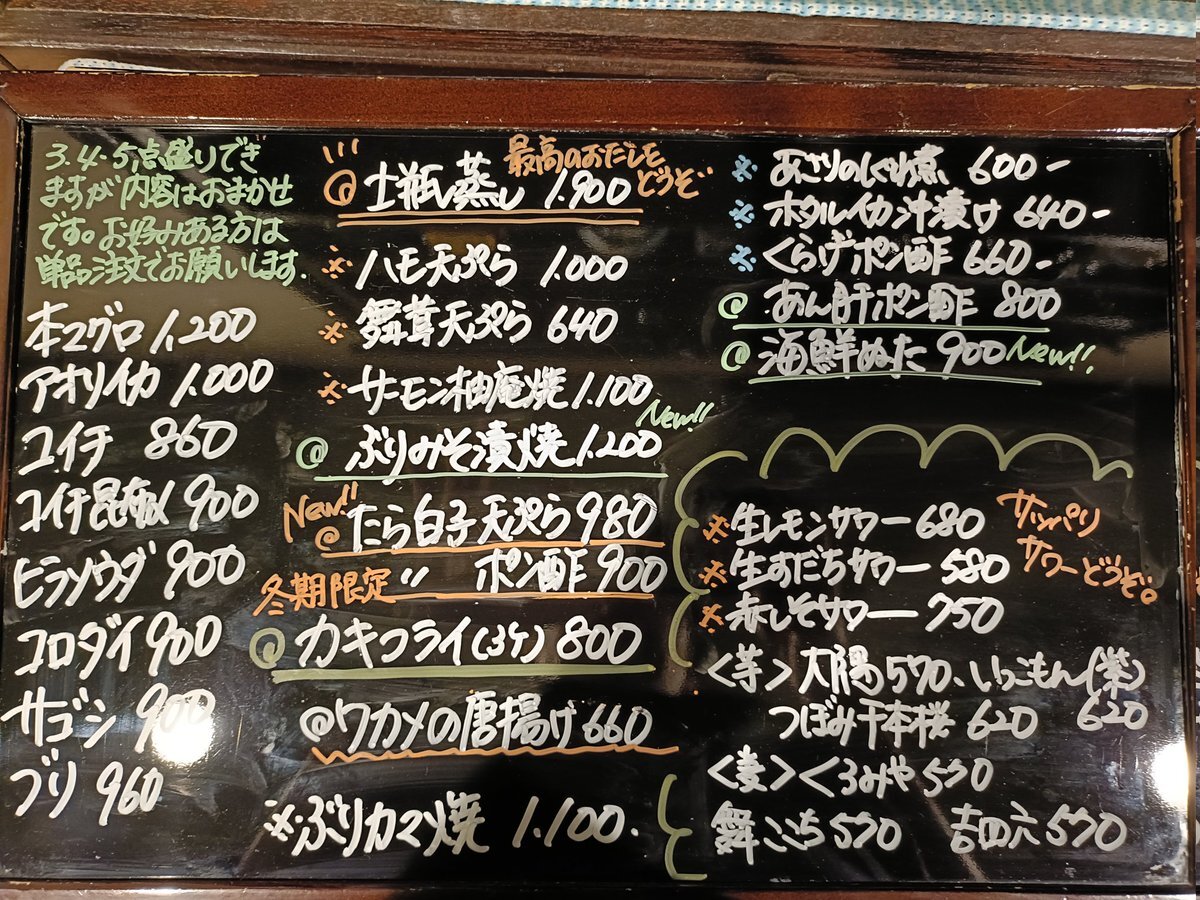 3.4.5点盛りでき
ますが内容はおまかせ
です。お好みある方は
単品注文でお願いします.
本マグロ 1,200
アオリイカ 1.000
コイチ 860
コイチ昆布〆 900
ヒラソウダ 900
コロダイ 900
サゴシ 900
ブリ 960
最高のおだしを
どうぞ
@土瓶蒸し 1.900
※ハモ天ぷら 1.000
※舞茸天ぷら 640
※サーモン柚庵焼 1.100
New!!
@ぶりみそ漬焼 1.200
New!!
@たら白子天ぷら 980
冬期限定 〃 ポン酢 900
@カキフライ(3ケ) 800
@ワカメの唐揚げ 660
※ぶりカマ焼 1.100.
※あさりのしぐれ煮 600-
※ホタルイカ沖漬け 640-
※くらげポン酢 660-
@あん肝ポン酢 800
@海鮮ぬた 900 New!!
※生レモンサワー 680
※生すだちサワー 580
※赤しそサワー 750
サッパリ
サワーどうぞ。
<芋>大隅 570、いっこもん(紫)
620
つぼみ千本桜 620
<麦>くろみや 570
舞ここち 570 吉四六 570